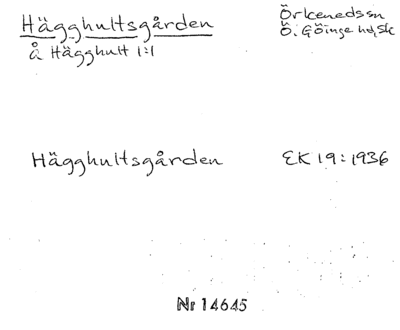 Hägghultsgården
å Hägghult 1:1
Örkeneds sn
Ö. Göinge hd, Sk
Hägghultsgården
EK 19:1936
Nr 14645